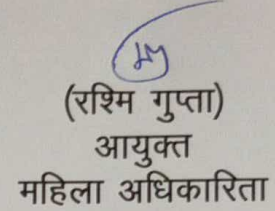 (रश्मि गुप्ता)
आयुक्त
महिला अधिकारिता